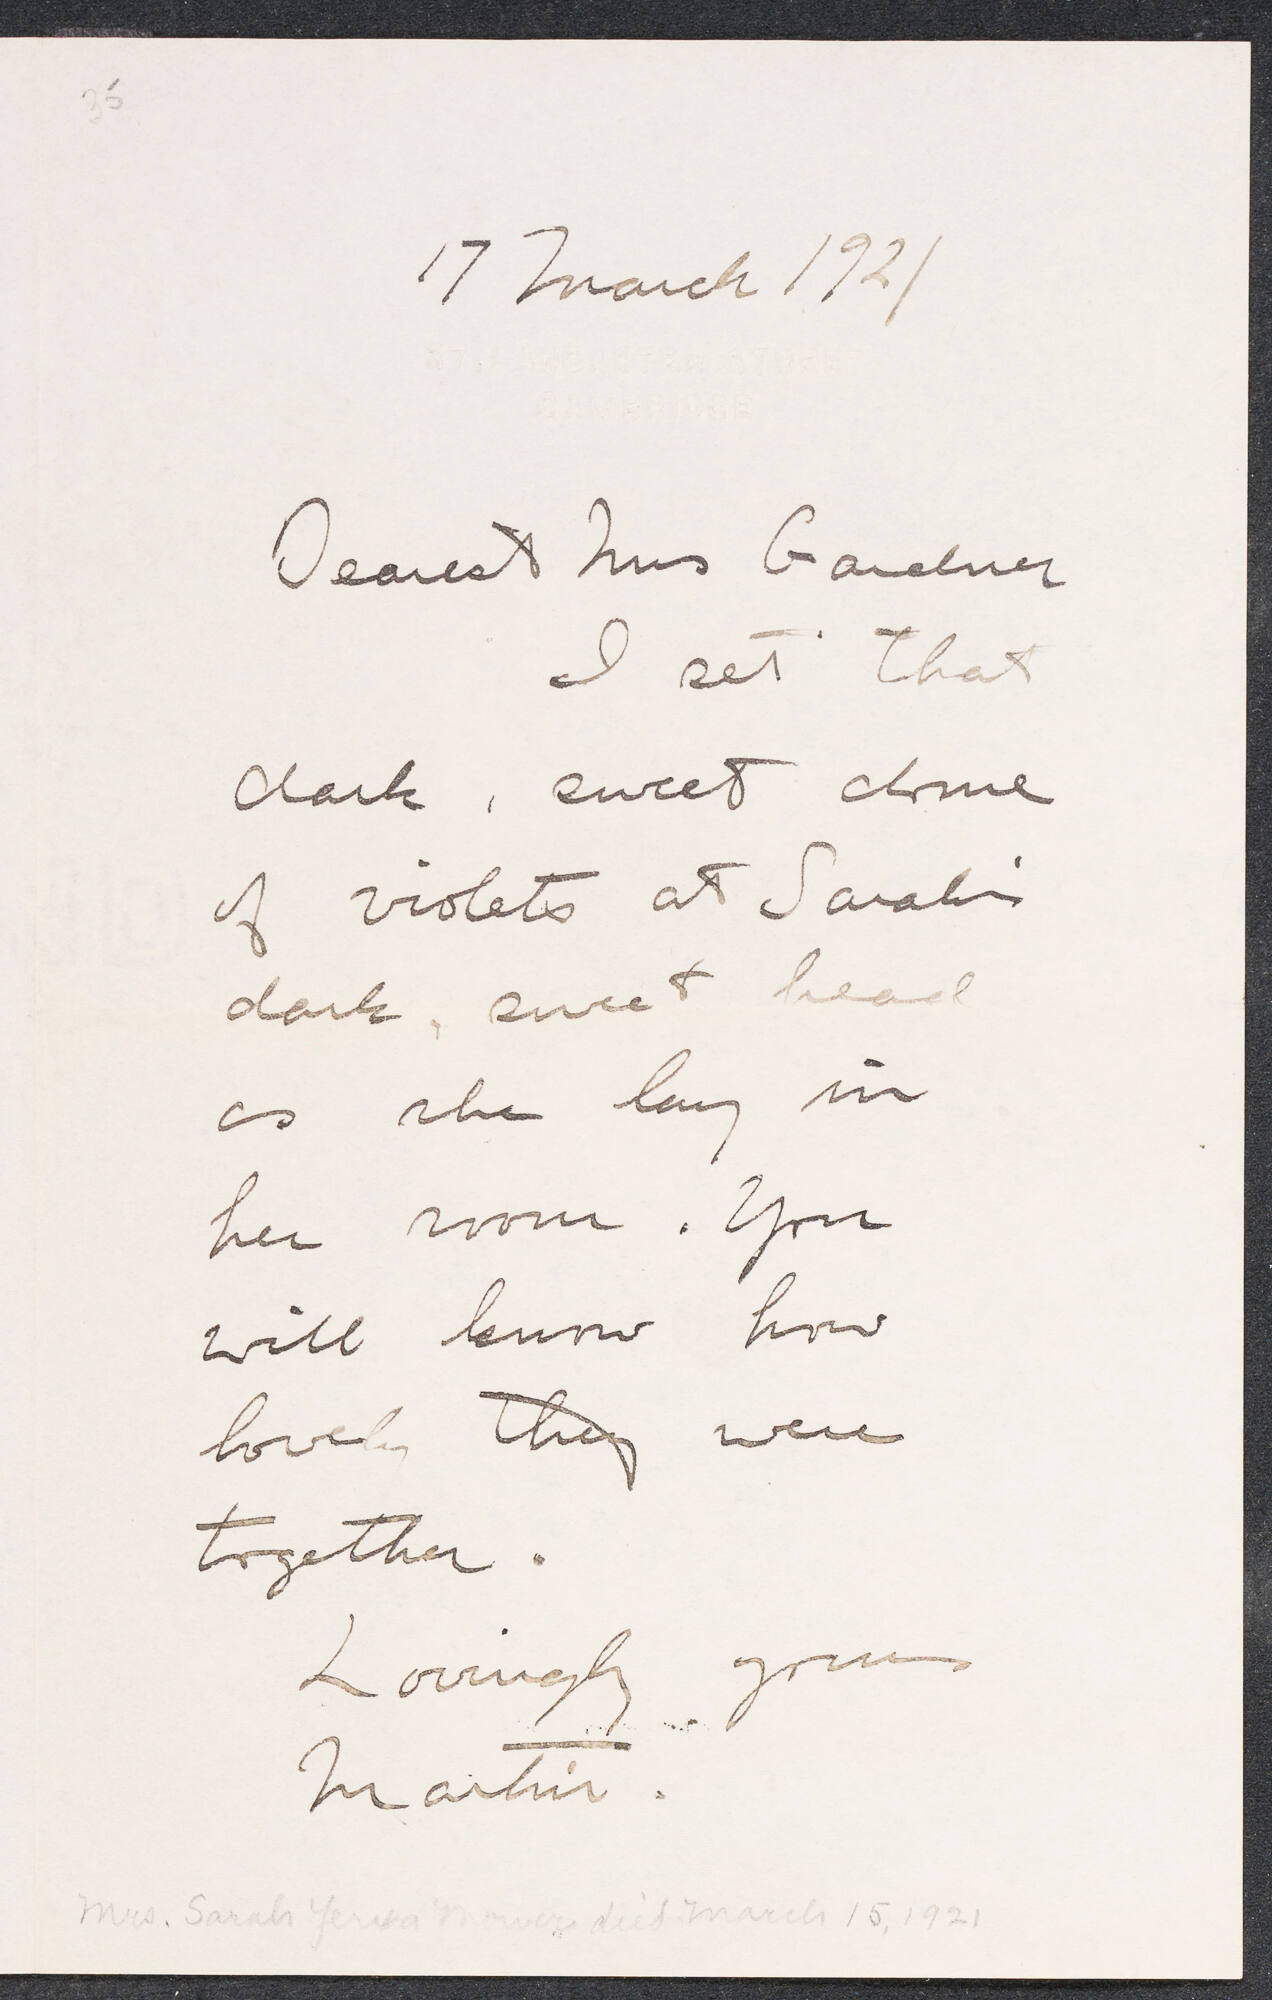 35
17 March 1921
Dearest Mrs Gardner
I set that
dark, sweet dome
of violets at Sarah's
dark, sweet head
as she lay in
her room. You
will know how
lovely they were
together.
Lovingly yours
Martin.
Mrs. Sarah Yerxa Mower died March 15, 1921